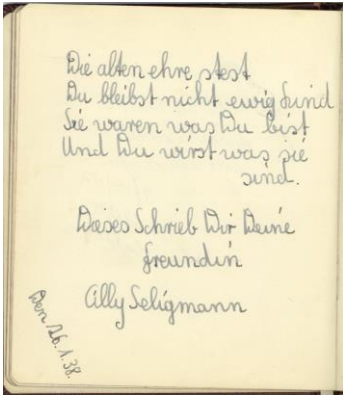 Die alten ehre stest
Du bleibst nicht ewig Kind
Sie waren was Du bist
Und Du wirst was sie
sind.
Dieses Schrieb Dir Deine
freundin
Cilly Seligmann
Den 26.1.38.